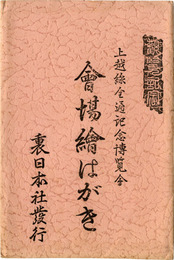 上越線全通記念博覧会
會場繪はがき
裏日本社發行